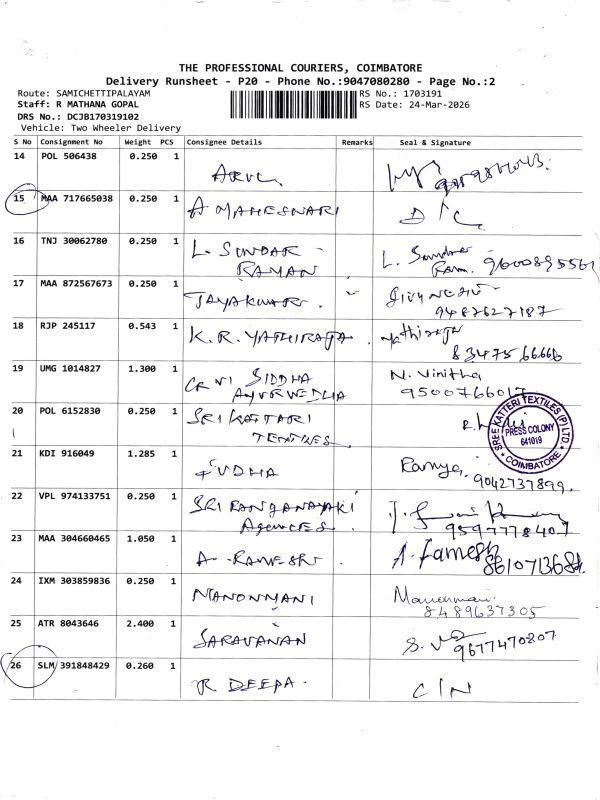 THE PROFESSIONAL COURIERS, COIMBATORE
Delivery Runsheet - P20 - Phone No.:9047080280 - Page No.:2
Route: SAMICHETTIPALAYAM
Staff: R MATHANA GOPAL
DRS No.: DCJB170319102
Vehicle: Two Wheeler Delivery
RS No.: 1703191
RS Date: 24-Mar-2026
S No Consignment No Weight PCS Consignee Details Remarks Seal & Signature
14 POL 506438 0.250 1
15 MAA 717665038 0.250 1 A MAHESWARI D/C
16 TNJ 30062780 0.250 1 L. SUNDAR L. Sundar
RAMAN Ram. 9600895561
17 MAA 872567673 0.250 1 JAYAKUMAR.
9487627187
18 RJP 245117 0.543 1 K.R. YATHIRAJA. Yathiraja
8347566666
19 UMG 1014827 1.300 1 SIDDHA N. Vinitha
AYURVEDHA
20 POL 6152830 0.250 1 SRI KATTARI
TEXTILES
SREE KATTERI TEXTILES (P) LTD
PRESS COLONY
641019
COIMBATORE
21 KDI 916049 1.285 1 SUDHA Ramya.
9042737899.
22 VPL 974133751 0.250 1 SRI RANGANAYAKI
AGENCIES. 9597778407
23 MAA 304660465 1.050 1 A. RAMESH A. Ramesh
24 IXM 303859836 0.250 1 MANONMANI Manonmani
8489637305
25 ATR 8043646 2.400 1 SARAVANAN
9677470807
26 SLM 391848429 0.260 1 R. DEEPA. C/N